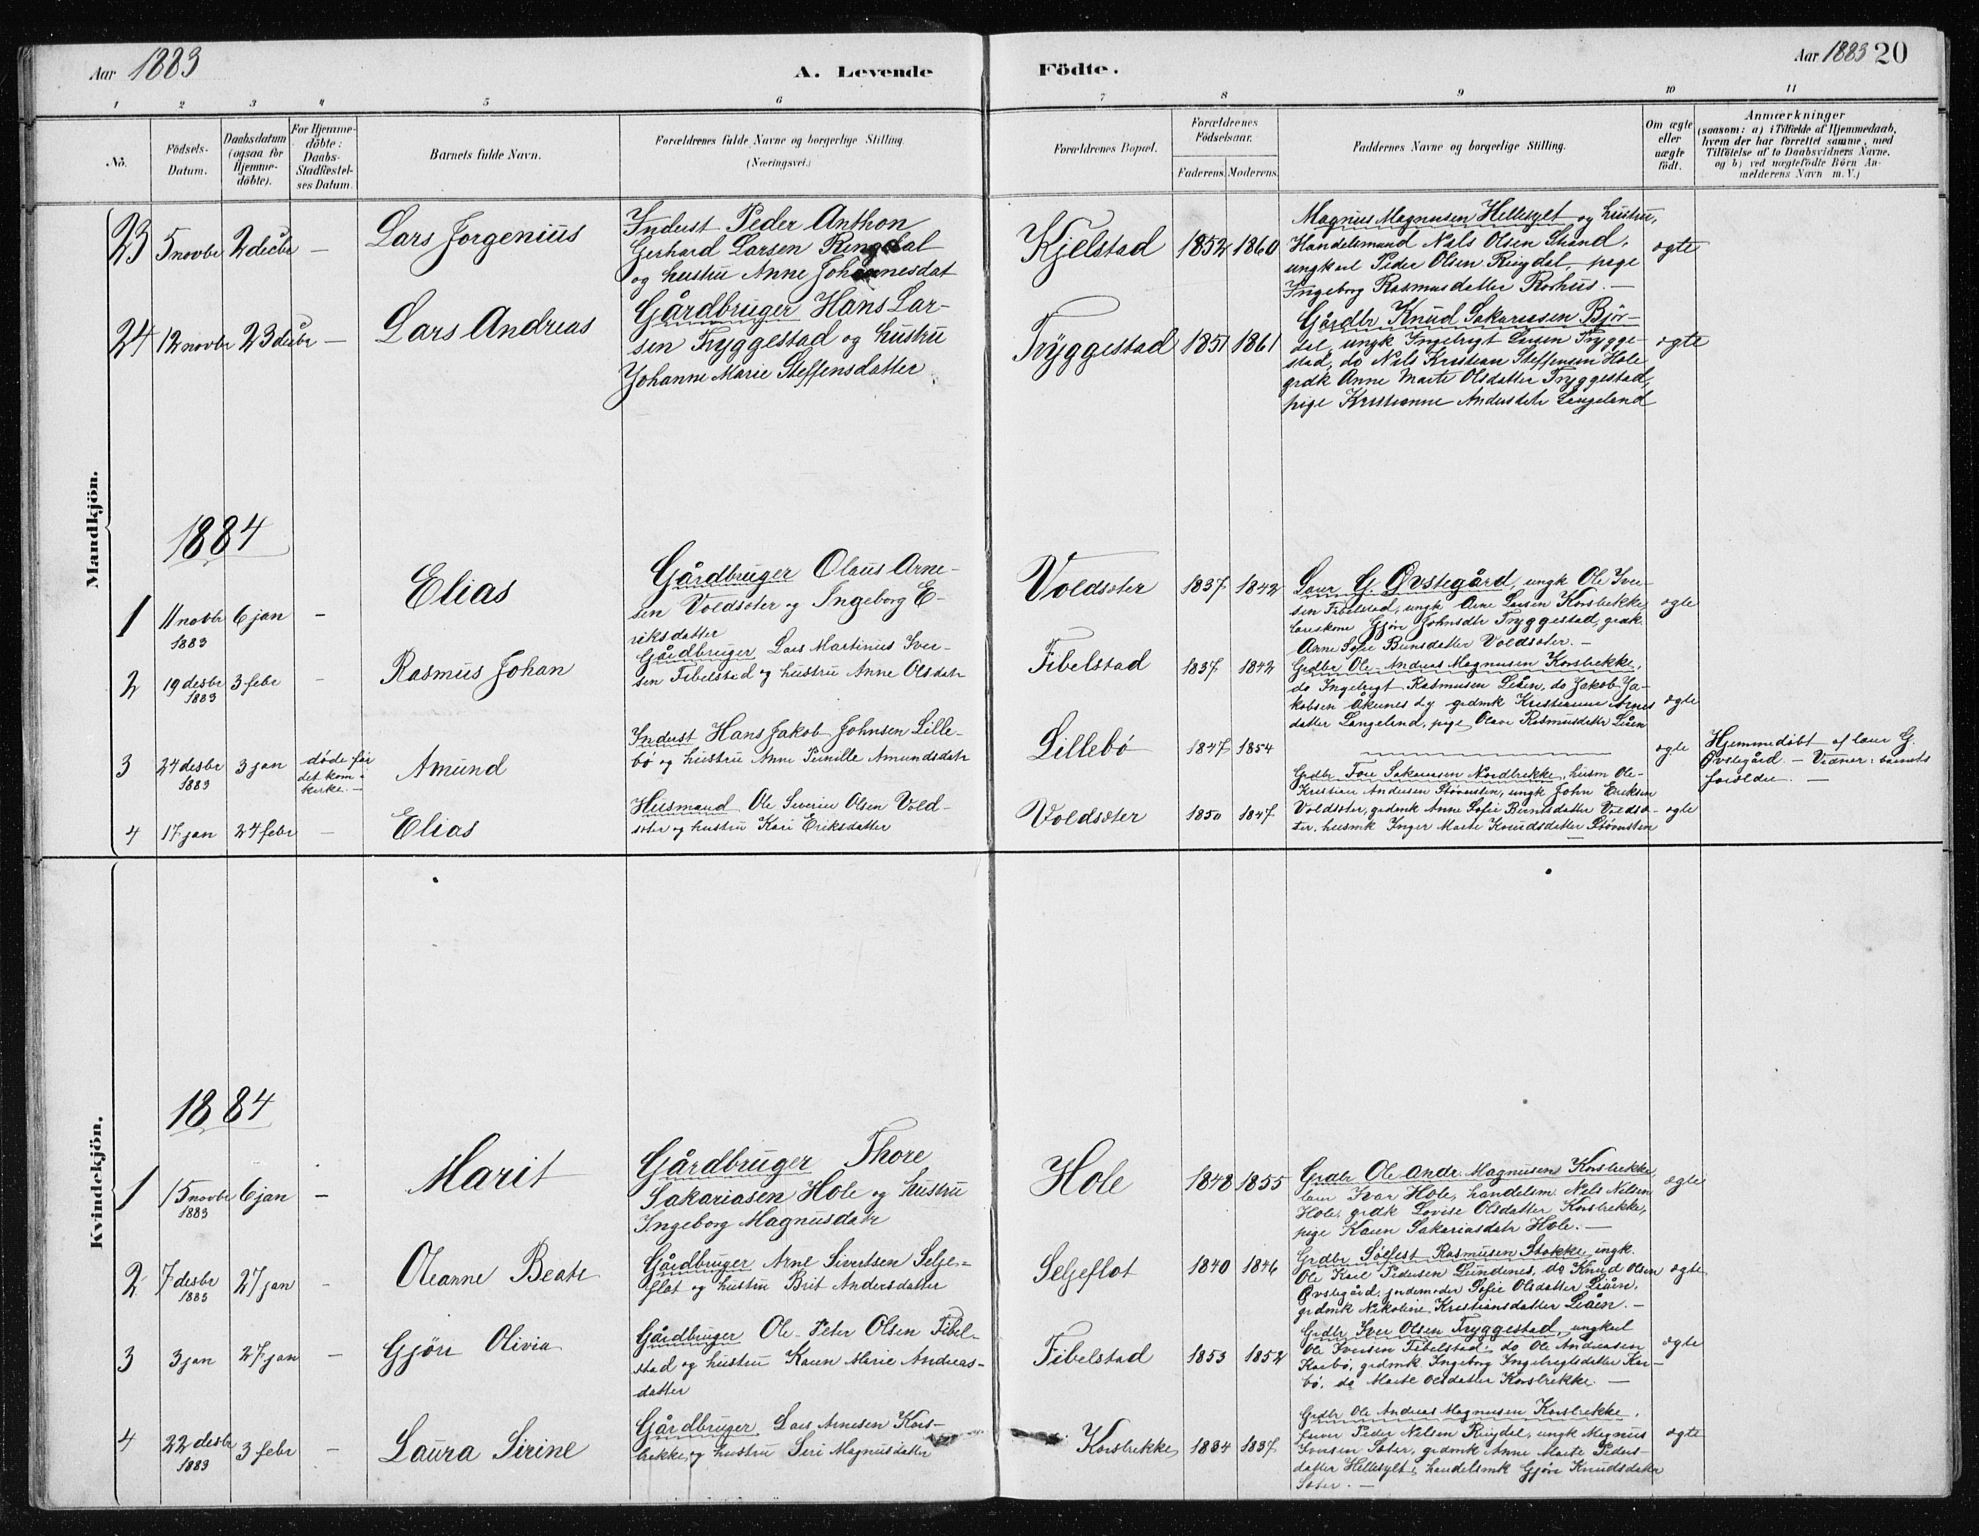 Aar 1883
A. Levende Födte.
Aar 1883 20
1 2 3 4 5 6 7 8 9 10 11
No.
Födsels-
Datum.
Daabsdatum
(ogsaa for
Hjemme-
döbte).
For Hjemme-
döbte:
Daabs-
Stadfæstel-
ses Datum.
Barnets fulde Navn.
Forældrenes fulde Navne og borgerlige Stilling.
(Næringsvei.)
Forældrenes Bopæl.
Forældrenes
Födselsaar.
Faderens. Moderens.
Faddernes Navne og borgerlige Stilling.
Om ægte
eller
uægte
födt.
Anmærkninger
(saasom: a) i Tilfælde af Hjemmedaab,
hvem der har forrettet samme, med
Tilföielse af to Daabsvidners Navne,
og b) ved uægtefödte Börn An-
melderens Navn m. V.)
Mandkjön.
23 5 novbr 2 decbr – Lars Jorgenius
Inderst Peder Anthon
Gerhard Larsen Ringdal
og hustru Anne Johannesdat
Kjelstad 1852 1860
Magnus Magnusen Hellesylt og hustru,
Handelsmand Nils Olsen Strand,
ungkarl Peder Olsen Ringdal, pige
Ingeborg Rasmusdatter Rorhus. –
ægte
24 12 novbr 23 decbr – Lars Andreas
Gårdbruger Hans Lar-
sen Tryggestad og hustru
Johanne Marie Steffensdatter
Tryggestad 1851 1861
Gårdbr Knud Sakariasen Bjør-
dal, ungk Ingebrigt Larsen Trygge-
stad, do Nils Kristian Steffensen Hole
grdk Anne Marte Olsdatter Tryggestad,
pige Kristianne Andersdatr Langeland
ægte
1884
1 11 novbr 6 jan – Elias
1883
Gårdbruger Olaus Arne-
sen Voldsæter og Ingeborg E-
riksdatter
Voldsæter 1837 1842
Laur G. Øvstegård, ungk Ole Iver-
sen Fibelstad, ungk Arne Larsen Korsbrekke,
Gjøri Johnsdtr Tryggestad, grdk
Anne Sofie Berntsdatter Voldsæter. –
ægte
2 19 desbr 3 febr – Rasmus Johan
1883
Gårdbruger Lars Martinus Iver-
sen Fibelstad og hustru Anne Olsdatr
Fibelstad 1837 1842
Grdbr Ole Andreas Magnusen Korsbrekke,
do Ingebrigt Rasmusen Leåen, do Jakob Ja-
kobsen Åkernes og grdmk Kristianne Arnes
datter Langeland, pige Olave Rasmusdatr Leåen
ægte
3 24 desbr 3 jan døde før
1883 det kom i
kirke. –
Amund
Inderst Hans Jakob Johnsen Lille-
bø og hustru Anne Pernille Amundsdatr
Lillebø 1847 1854
ægte
Hjemmedøbt af laur G.
Øvstegård. – Vidner: barnets
forældre. –
4 17 jan 24 febr – Elias
Husmand Ole Severin Olsen Vold-
sæter og hustru Kari Eriksdatter
Voldsæter 1850 1847
Grdbr Tore Sakariasen Nordbrekke, husm Ole
Kristian Andersen Størensten, ungk John Eriksen
Voldsæter, grdmk Anne Sofie Berntsdatter Voldsæ-
ter, husmk Inger Marte Knudsdatter Størensten
ægte
Kvindekjön.
1884
1 15 novbr 6 jan – Marit
1883
Gårdbruger Thore
Sakariasen Hole og hustru
Ingeborg Magnusdatr
Hole 1848 1855
Grdbr Ole Andr. Magnusen Korsbrekke
Ivar Hole, handelsm. Nils Nilsen
Hole, grdk Lovise Olsdatter Korsbrekke,
pige Karen Sakariasdatr Hole. –
ægte
2 7 desbr 27 jan – Oleanne Beate
1883
Gårdbruger Arne Sivertsen Selje-
flot og hustru Brit Andersdatter
Seljeflot 1840 1846
Grdbr Sølfest Rasmusen Stokke, ungk.
Ole Karl Pedersen Lundenes, do Knud Olsen
Øvstegård, jordemoder Sofie Olsdatter Leåen,
grdmk Nikoline Kristiansdatter Leåen. –
ægte
3 3 jan 27 jan – Gjøri Olivia
Gårdbruger Ole Peter Olsen Fibel-
stad og hustru Karen Marie Andreas-
datter
Fibelstad 1853 1852
Grdbr Iver Olsen Tryggestad, ungkarl
Ole Iversen Fibelstad, do Ole Andreasen
Karbø, grdmk Ingeborg Ingebrigtsdatter Kar-
bø, do Marte Olsdatter Korsbrekke. –
ægte
4 22 desbr 3 febr – Laura Sirine
1883
Gårdbruger Lars Arnesen Kors-
brekke og hustru Siri Magnusdatter
Korsbrekke 1834 1837
Grdbr Ole Andreas Magnusen Korsbrekke,
Peder Nilsen Ringdal, ungk Magnus
Iversen Sæter, grdmk Anne Marte Peders-
datter Hellesylt, handelsmk Gjøri Knudsdatter
Sæter. –
ægte